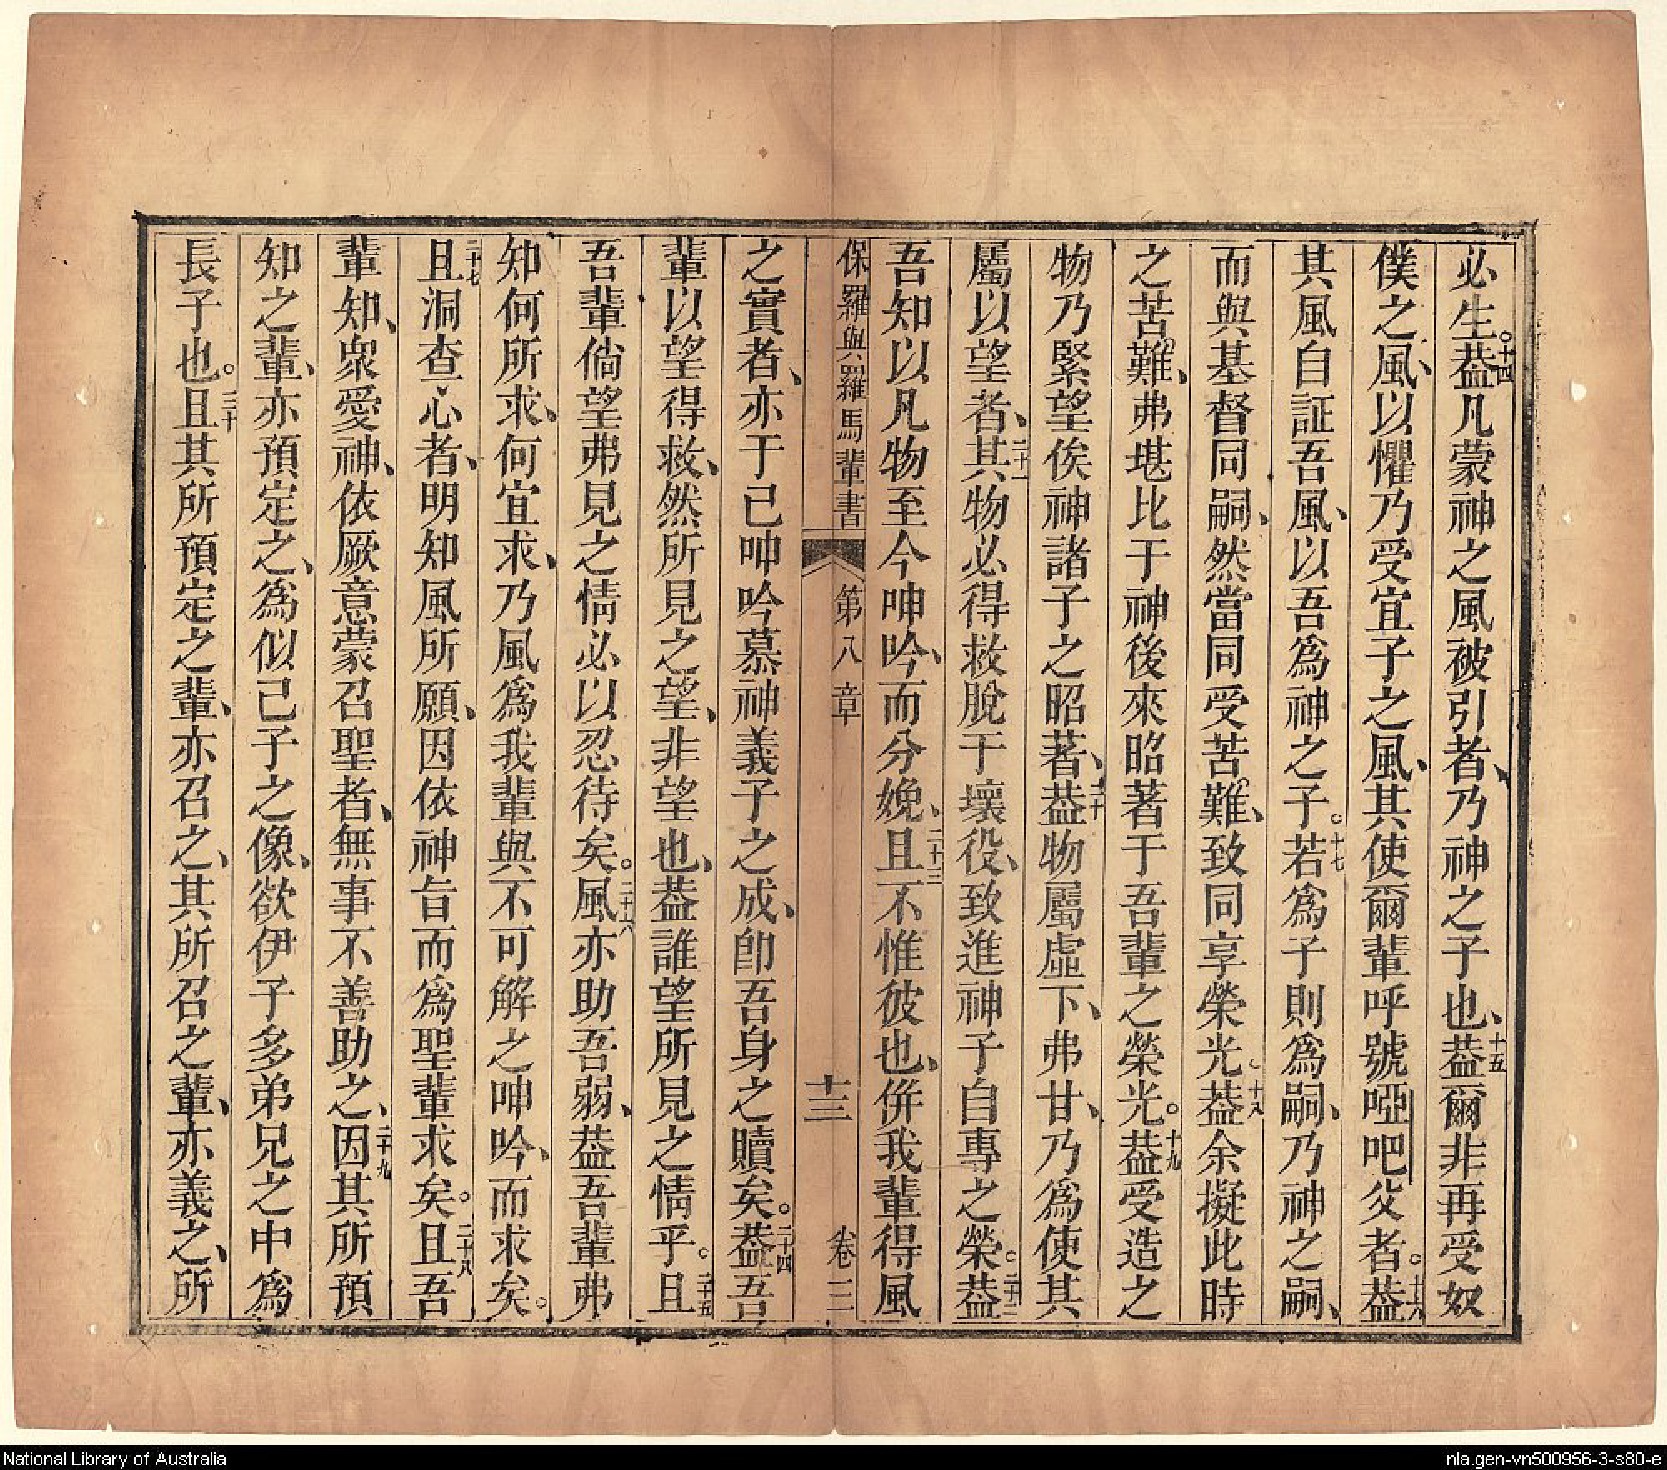 必生。十四葢凡蒙神之風被引者、乃神之子也、十五葢爾非再受奴
僕之風、以懼乃受宜子之風、其使爾輩呼號啞吧父者。十六葢
其風自証吾風、以吾為神之子。十七若為子則為嗣、乃神之嗣、
而與基督同嗣、然當同受苦難、致同享榮光。十八葢余擬此時
之苦難、弗堪比于神後來昭著于吾輩之榮光。十九葢受造之
物乃緊望俟神諸子之昭著、二十葢物屬虛下、弗甘、乃為使其
屬以望者、二十一其物必得救脫于壞役、致進神子自專之榮。二十二葢
吾知以凡物至今呻吟、而分娩、二十三且不惟彼也、併我輩得風
保羅與羅馬輩書 第八章 十三 卷三
之實者、亦于己呻吟慕神義子之成、卽吾身之贖矣。二十四葢吾
輩以望得救、然所見之望、非望也、葢誰望所見之情乎。二十五且
吾輩倘望弗見之情必以忍待矣。二十六風亦助吾弱、葢吾輩弗
知何所求、何宜求、乃風為我輩與不可解之呻吟、而求矣。
二十七且洞查心者、明知風所願、因依神旨而為聖輩求矣。二十八且吾
輩知、眾愛神、依厥意蒙召聖者、無事不善助之、二十九因其所預
知之輩、亦預定之、為似己子之像、欲伊子多弟兄之中為
長子也。三十且其所預定之輩、亦召之、其所召之輩、亦義之、所
National Library of Australia
nla.gen-vn500956-3-s80-e